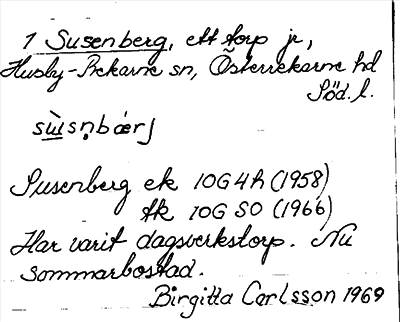 1 Susenberg, ett torp j.,
Husby-Rekarne sn, Österrekarne hd
Söd. l.
Susenberg ek 10G4h (1958)
tk 10G SO (1966)
Har varit dagsverkstorp. Nu
sommarbostad.
Birgitta Carlsson 1969